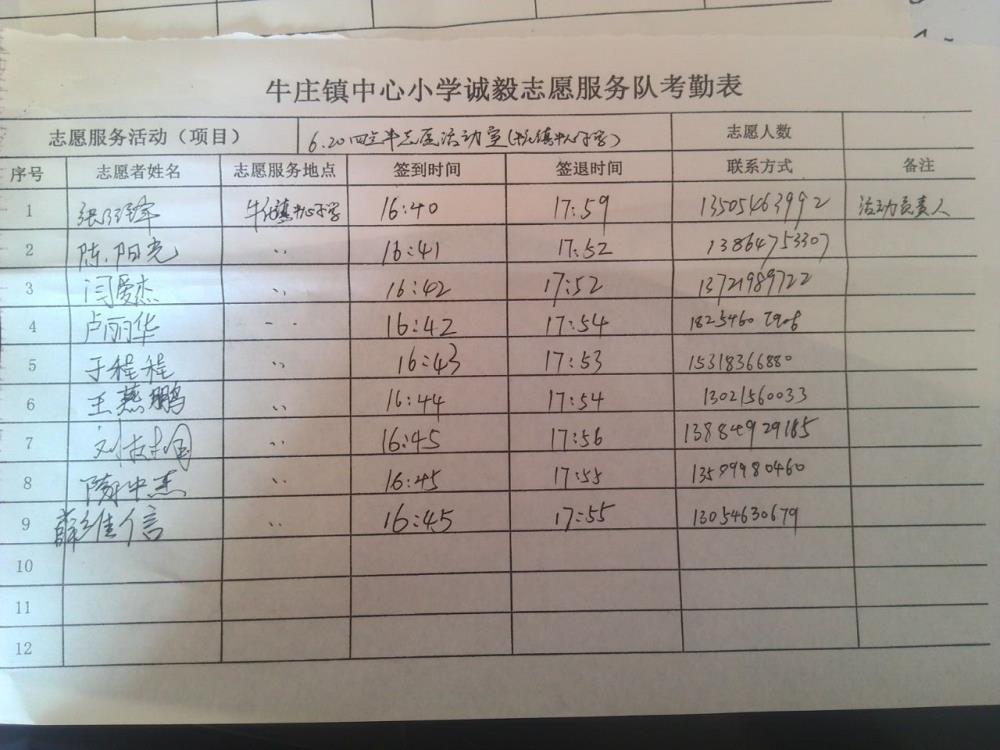 牛庄镇中心小学诚毅志愿服务队考勤表
志愿服务活动（项目） 6.20四点半志愿活动室(牛庄镇中心小学) 志愿人数
序号 志愿者姓名 志愿服务地点 签到时间 签退时间 联系方式 备注
1 牛庄镇中心小学 16:40 17:59 13505463992 活动负责人
2 陈阳光 ·· 16:41 17:52 13864753307
3 闫爱杰 ·· 16:42 17:52 13721989722
4 卢丽华 ·· 16:42 17:54
5 于程程 ·· 16:43 17:53 15318366880
6 王燕鹏 ·· 16:44 17:54 13021560033
7 ·· 16:45 17:56 13884929185
8 隋中杰 ·· 16:45 17:55 13589980460
9 薛维信 ·· 16:45 17:55 13054630679
10
11
12